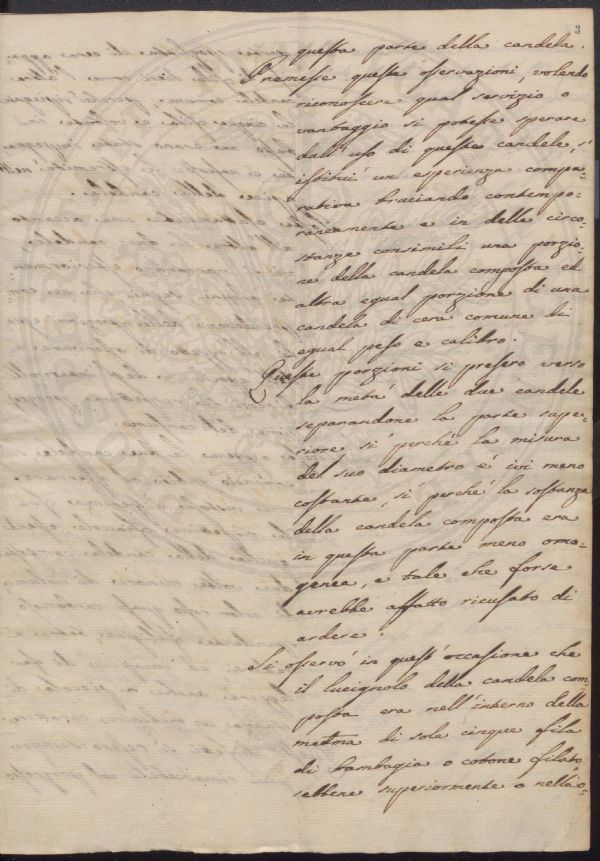 3
questa parte della candela.
Premesse queste osservazioni, volendo
riconoscere qual servizio o
vantaggio si potesse sperare
dall'uso di queste candele, s'
istituì un esperienza compa-
rativa bruciando contempo-
raneamente e in delle circo-
stanze consimili una porzio-
ne della candela composta ed
altra egual porzione di una
candela di cera comune di
egual peso e calibro.
Queste porzioni si presero verso
la metà delle due candele
separandone la parte supe-
riore sì perché la misura
del suo diametro è ivi meno
costante, sì perché la sostanza
della candela composta era
in questa parte meno omo-
genea, e tale che forse
avrebbe affatto ricusato di
ardere.
Si osservò in quest'occasione che
il lucignolo della candela com-
posta era nell'interno della
medma di sole cinque fila
di bambagia o cotone filato
sebbene superiormente o nella